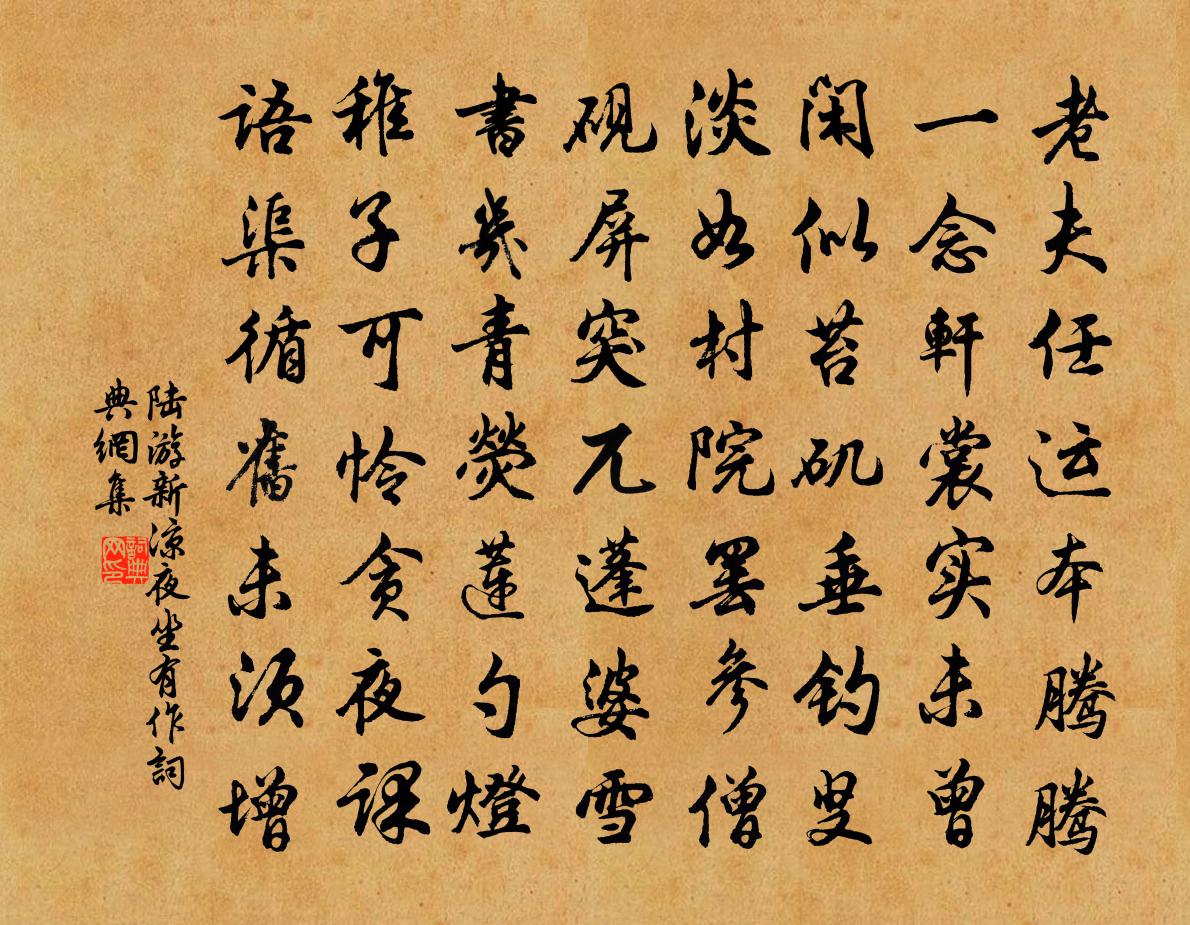 老夫任运本腾腾
一念軒裳实未曾
闲似苔矶垂钓叟
淡如村院罢參僧
砚屏突兀蓬婆雪
書几青熒莲勺燈
稚子可怜贪夜课
语渠循舊未须增
陆游新凉夜坐有作詞
典網集
詞典网印